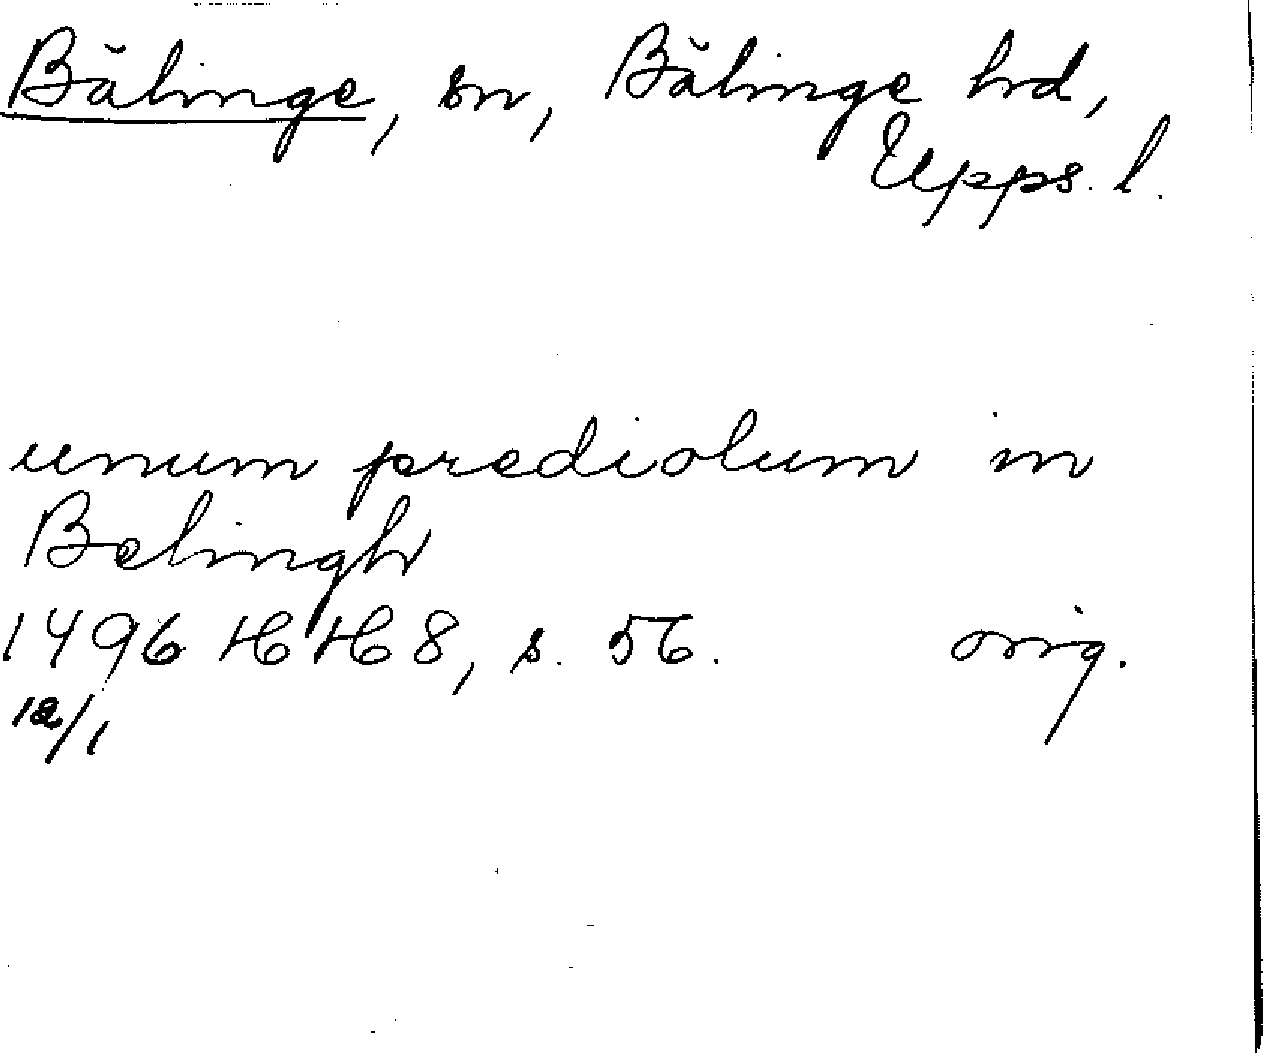 Bälinge, sn, Bälinge hd,
Upps. l.
unum prediolum in
Belingh
1496 HH 8, s. 56. orig.
12/1